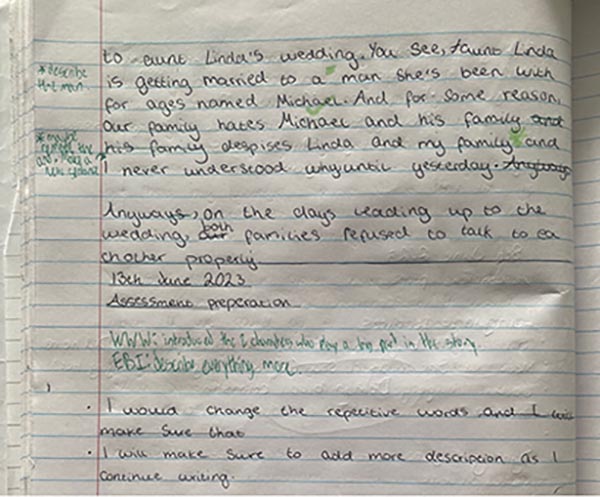 to aunt Linda's wedding. You see, Aunt Linda
*describe that man.
is getting married to a man she's been with
for ages named Michael. And for some reason,
our family hates Michael and his family and
his family despises Linda and my family and
I never understood why until yesterday. Anyways
Anyways, on the days leading up to the
wedding, our both families refused to talk to ea
chother properly.
13th June 2023
Assessment preperation
WWW: introduced the 2 characters who play a big part in the story
EBI: describe everything more.
• I would change the repetitive words and I will
make sure that
• I will make sure to add more description as I
continue writing.